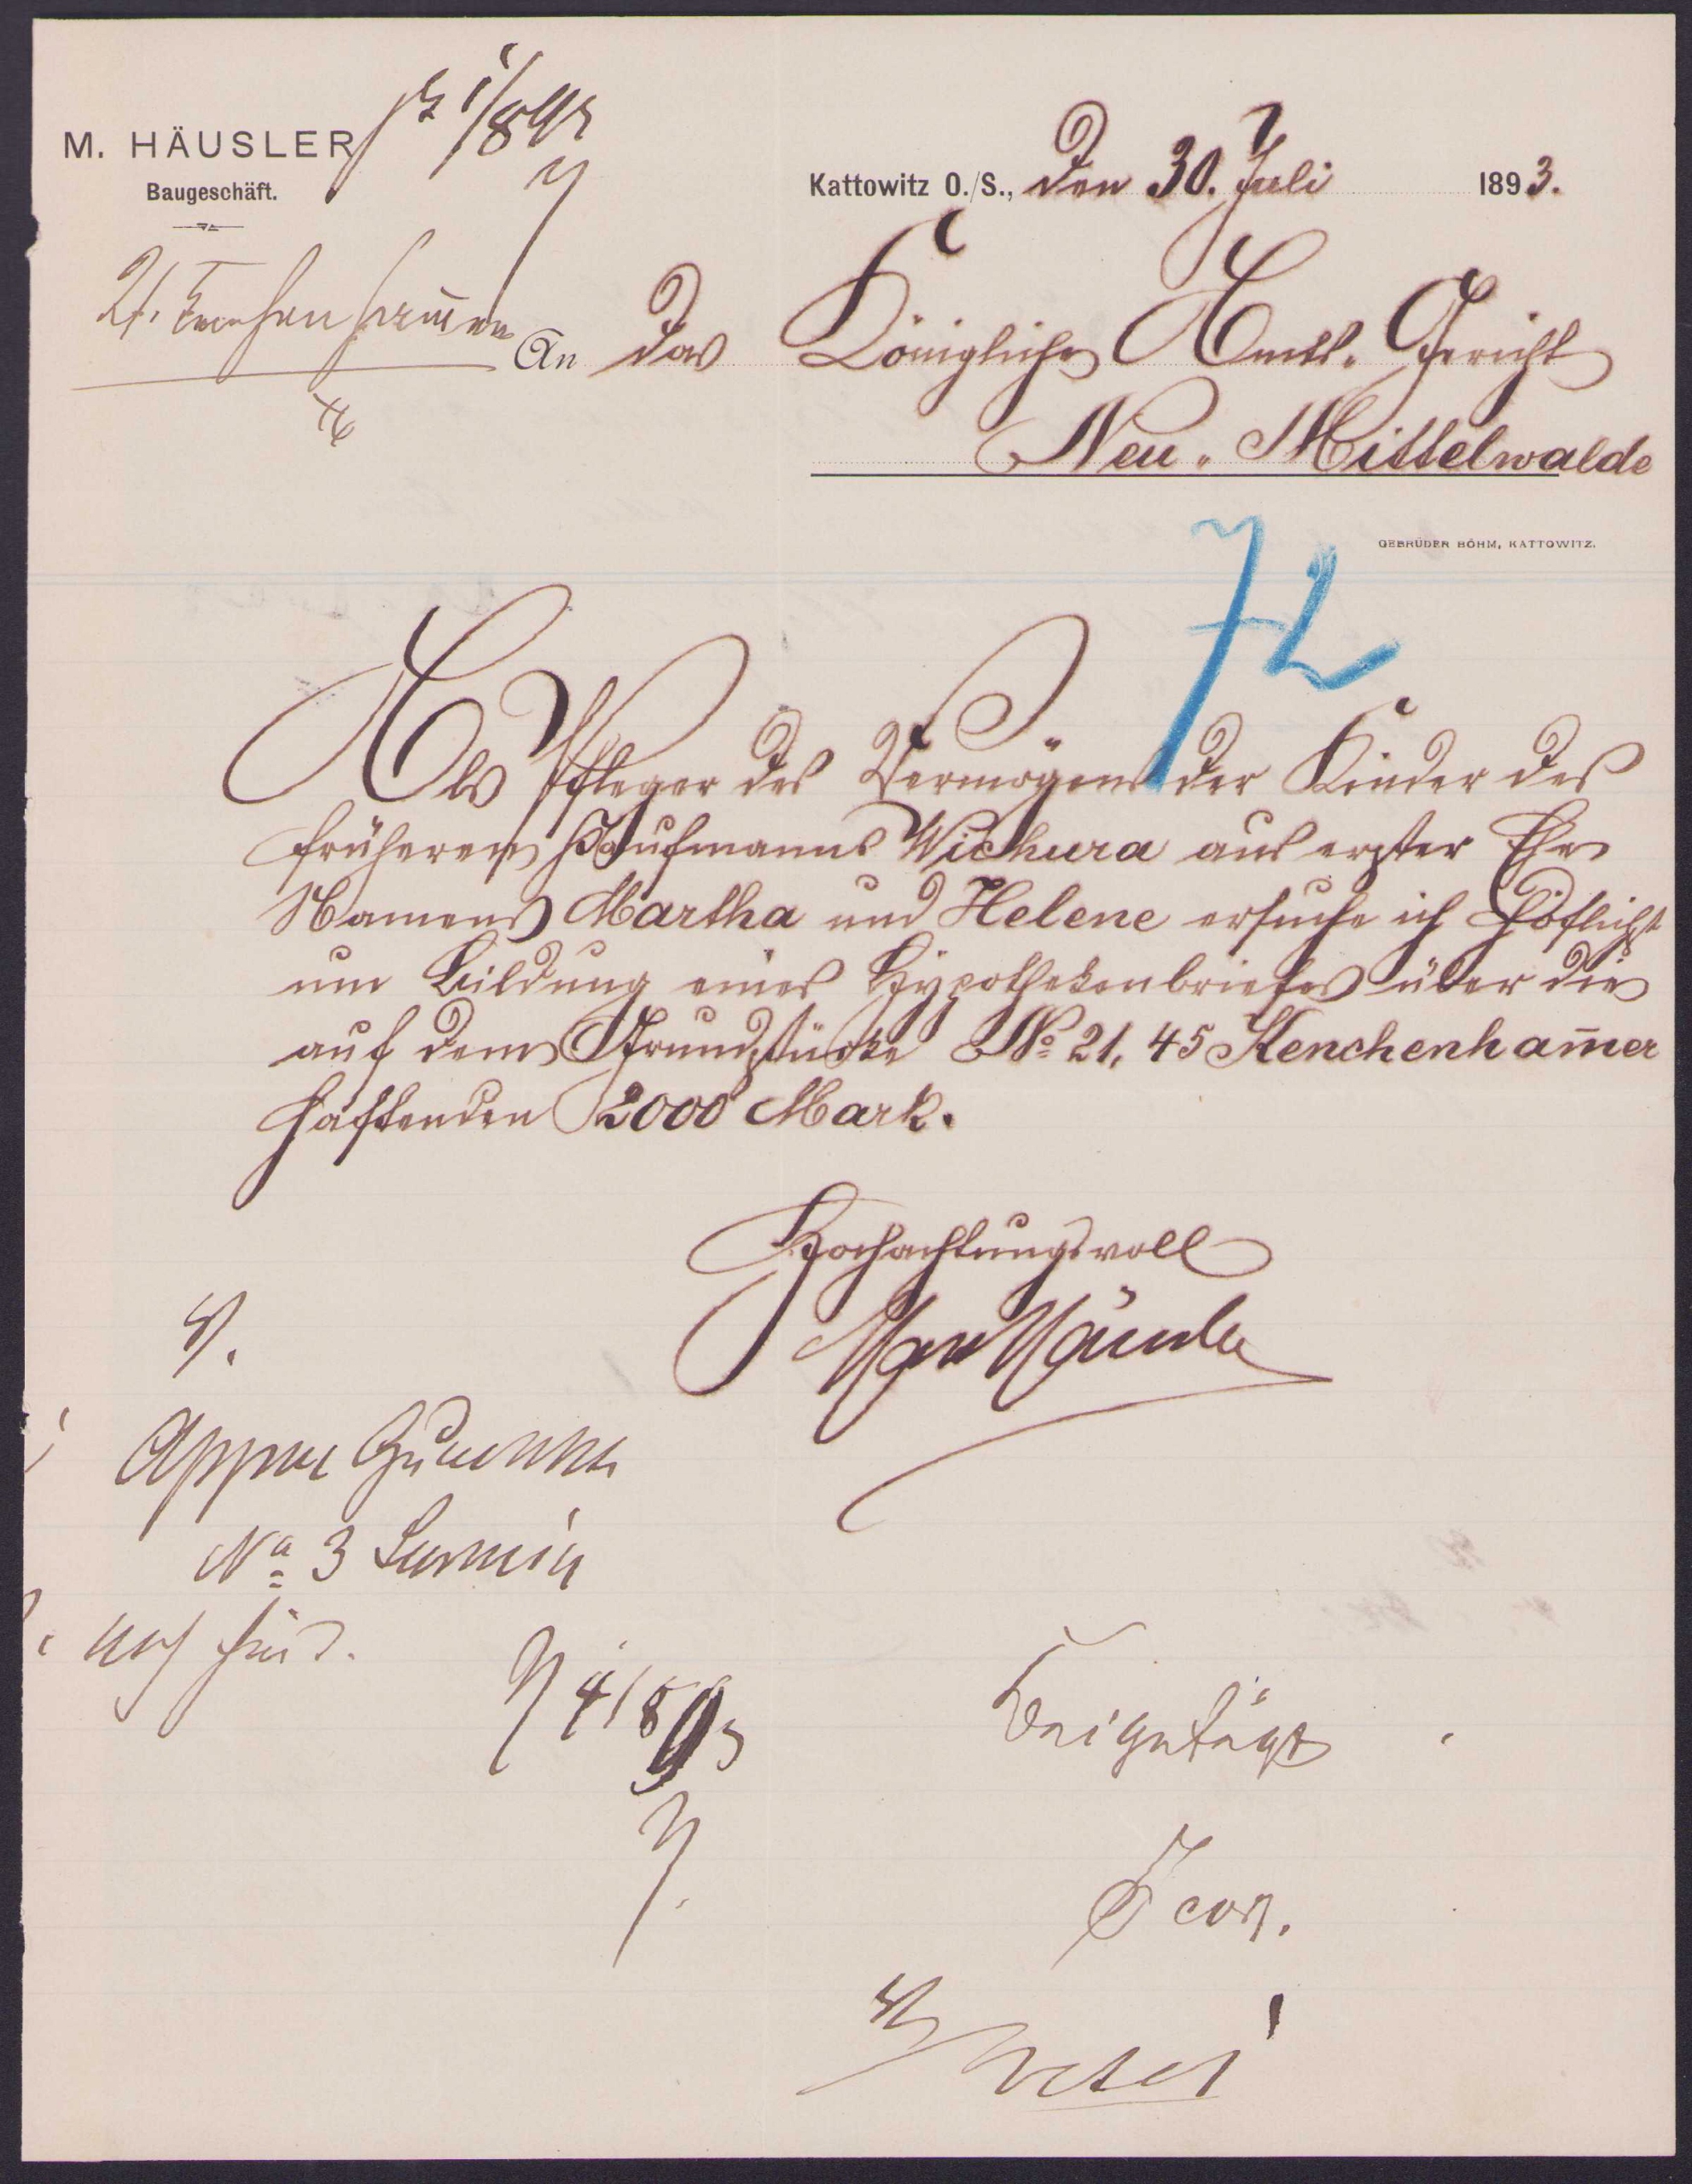 M. HÄUSLER
Baugeschäft.
Kattowitz O./S., den 30. Juli 1893.
An das Königliche Amts-Gericht
Neu-Mittelwalde
GEBRÜDER BÖHM, KATTOWITZ.
72
Als Pfleger des Vermögens der Kinder des
früheren Kaufmanns Wichura aus erster Ehe
Namens Martha und Helene ersuche ich höflichst
um Bildung eines Hypothekenbriefes über die
auf dem Grundstücke No 21, 45 Kenchenham̄er
haftenden 2000 Mark.
Hochachtungsvoll
Max Häusler
V.
No 3
4/8 93
Beigefügt